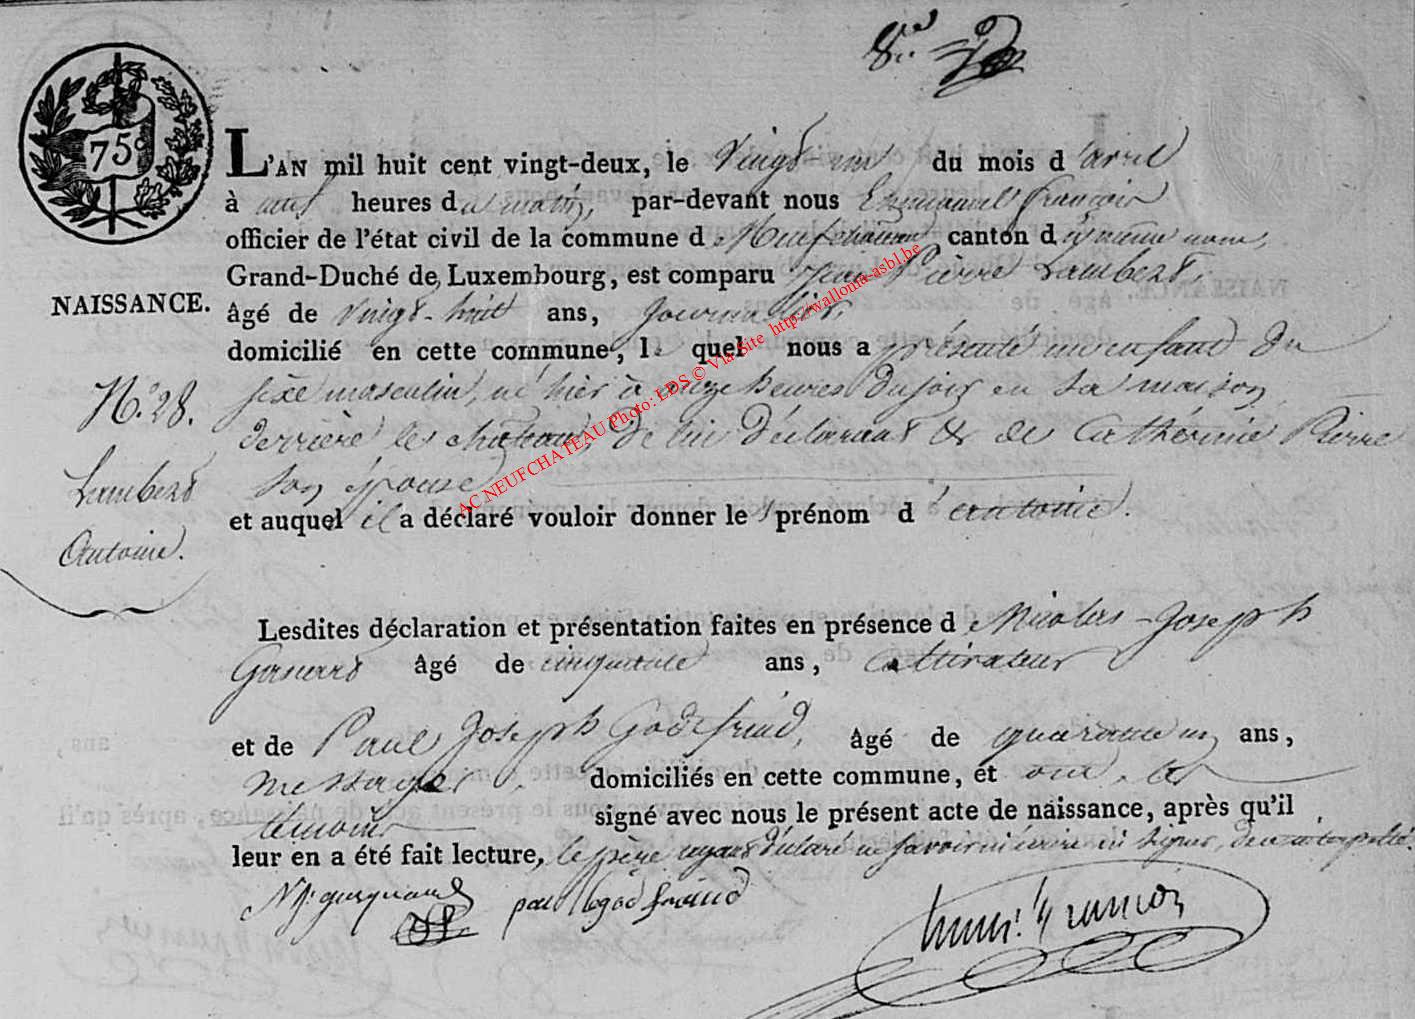 8.me
75c
L'AN mil huit cent vingt-deux, le Vingt-un du mois d'avril
à neuf heures du matin, par-devant nous Emmanuel François
officier de l'état civil de la commune de Neufchateau canton du même nom,
Grand-Duché de Luxembourg, est comparu Jean Pierre Lambert,
NAISSANCE.
âgé de Vingt-huit ans, Journalier,
domicilié en cette commune, le quel nous a présenté un enfant du
N.o 28.
sexe masculin, né hier à onze heures du soir en sa maison
derrière le château, de lui déclarant & de Cathérine Pierre
Lambert
son épouse
et auquel il a déclaré vouloir donner le prénom d'antoine.
Antoine.
Lesdites déclaration et présentation faites en présence de Nicolas-Joseph
âgé de cinquante ans, cultivateur
et de Paul Joseph Godfriad, âgé de quarante un ans,
Messager, domiciliés en cette commune, et ont les
témoins signé avec nous le présent acte de naissance, après qu'il
leur en a été fait lecture, le père ayant déclaré ne savoir ni écrire ni signer, de ce interpellé.
AC NEUFCHATEAU Photo: LDS © Via Site http://wallonia-asbl.be